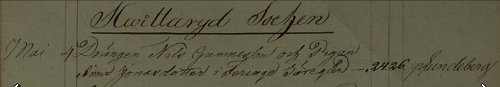 Hwittaryd Socken
7 Mai 4 Drängen Nils Gummesson och Pigan
Anna Jonasdotter i Toringe Söregård — 24 26. Lundeberg